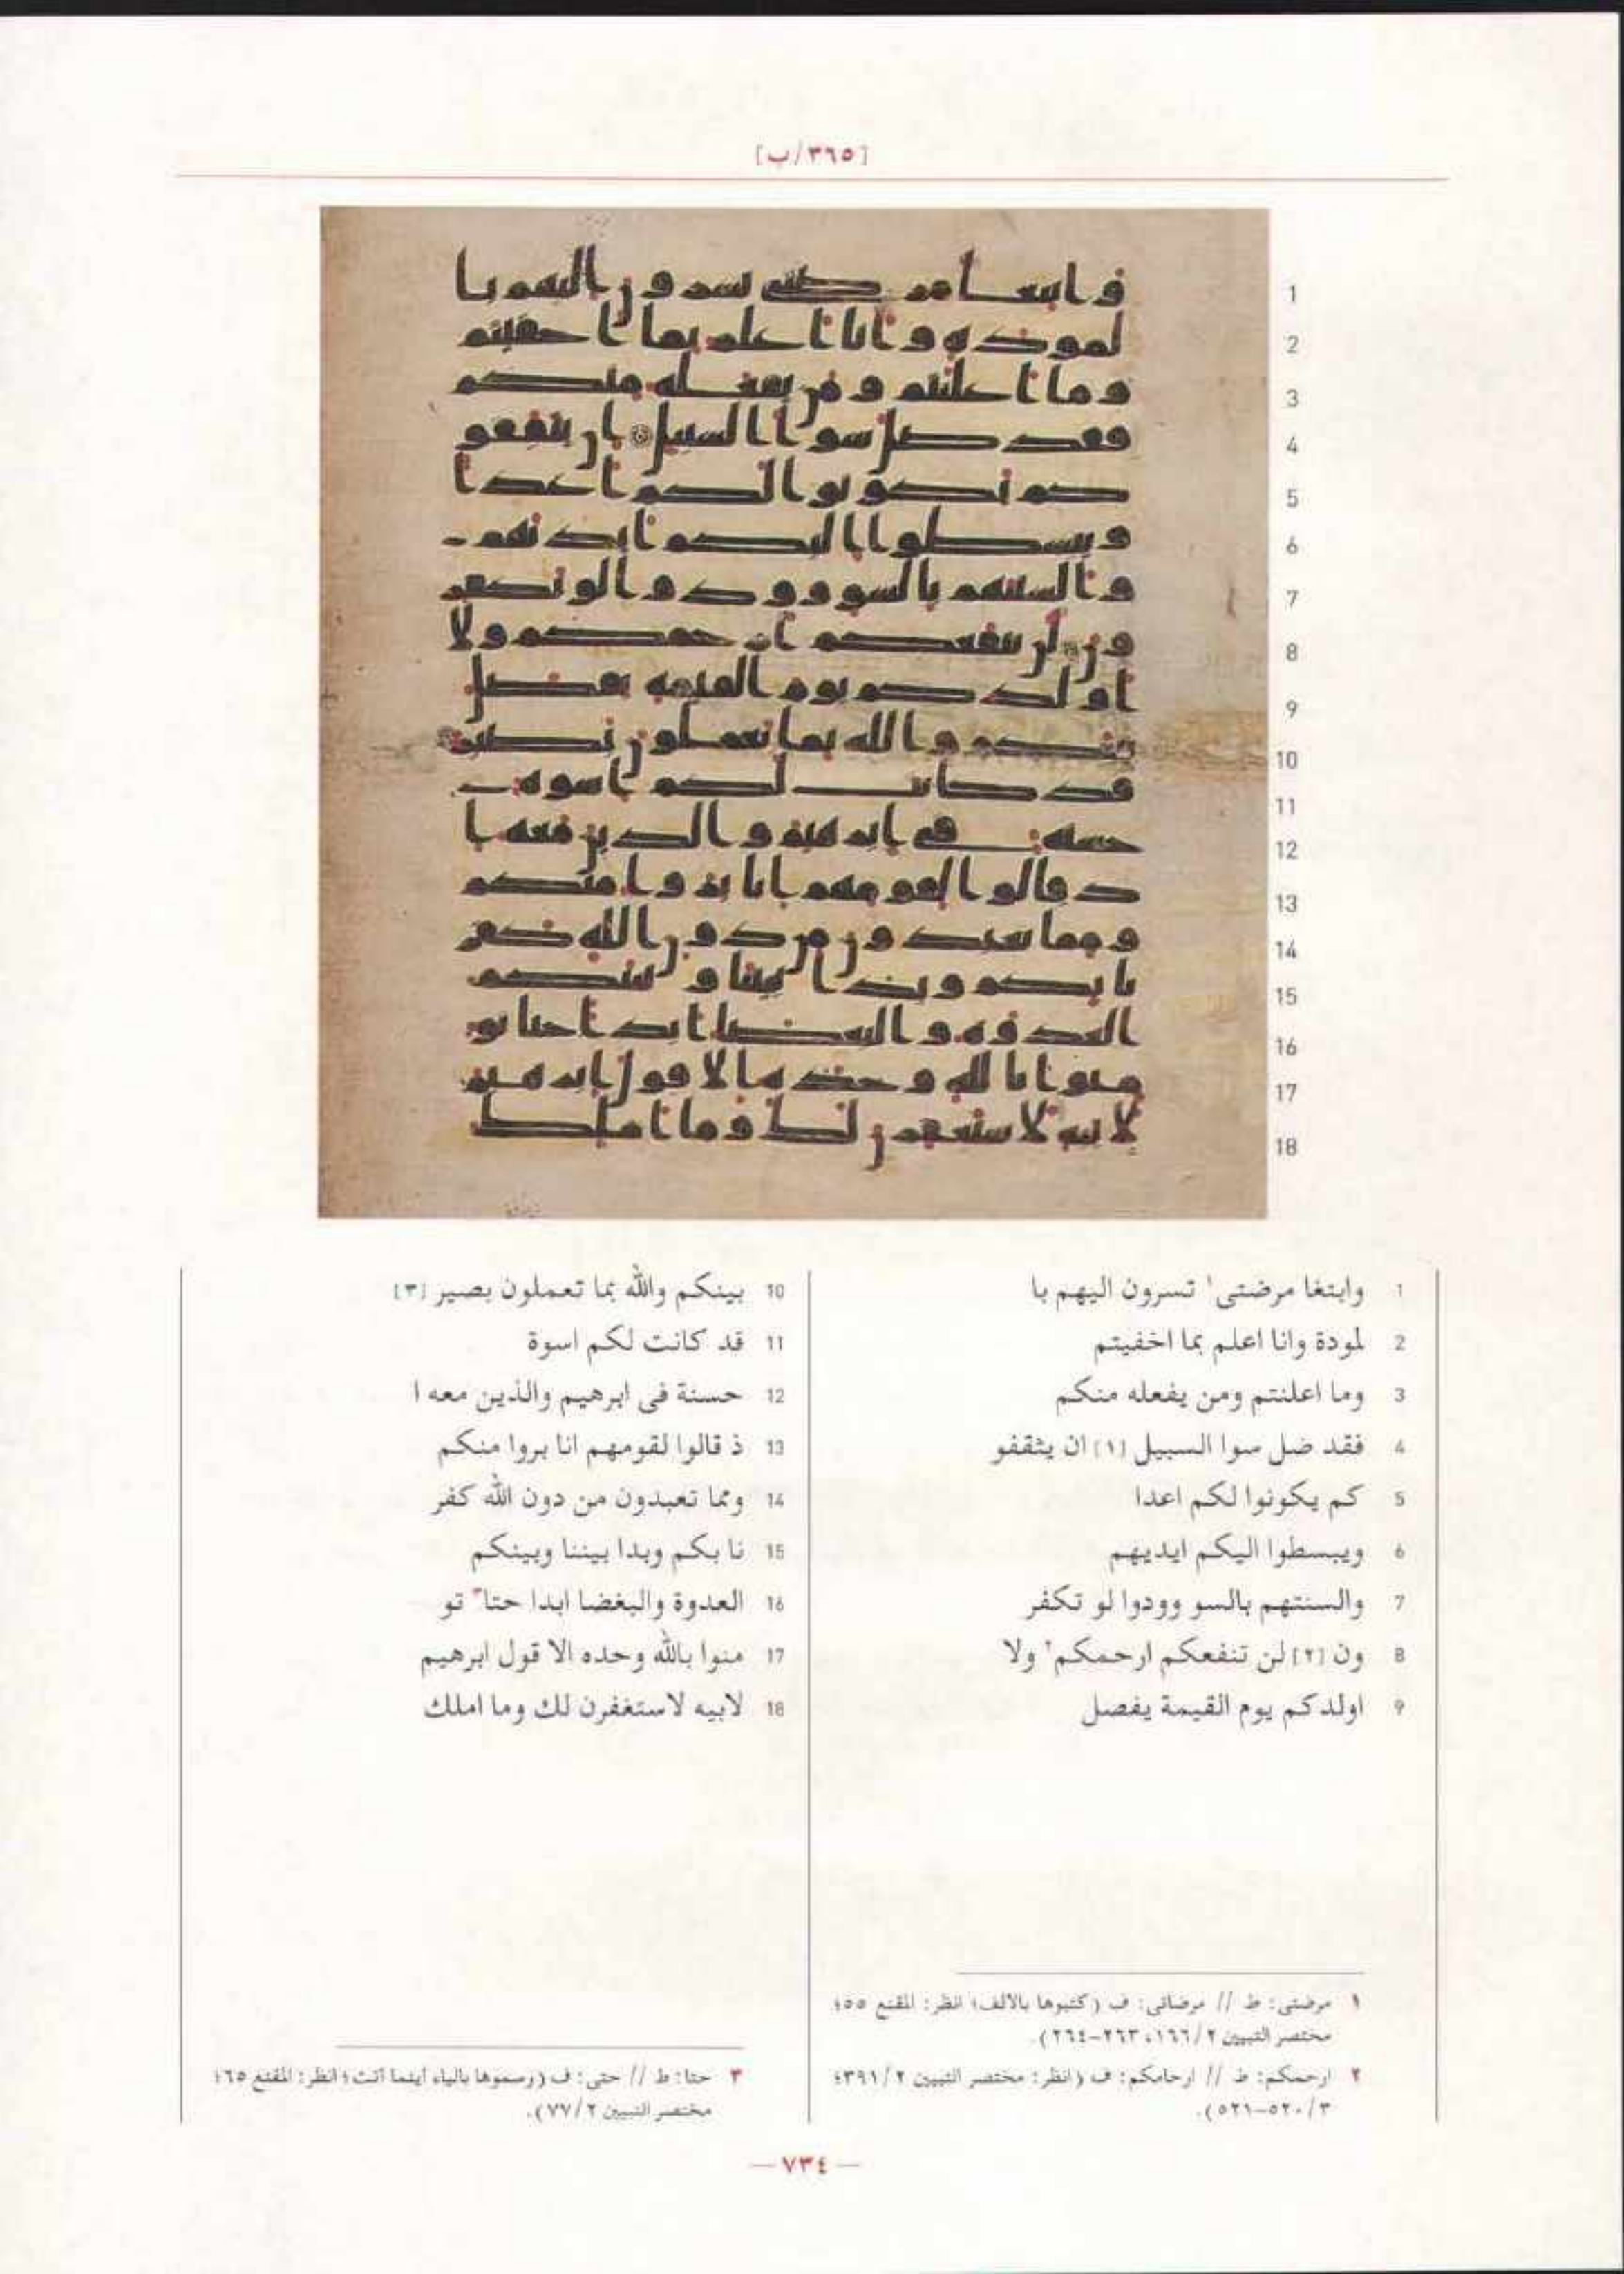 [٣٦٥/ب]
1
2
3
4
5
6
7
8
9
10
11
12
13
14
15
16
17
18
1 وابتغا مرضتى١ تسرون اليهم با
2 لمودة وانا اعلم بما اخفيتم
3 وما اعلنتم ومن يفعله منكم
4 فقد ضل سوا السبيل [١] ان يثقفو
5 كم يكونوا لكم اعدا
6 ويبسطوا اليكم ايديهم
7 والسنتهم بالسو وودوا لو تكفر
8 ون [٢] لن تنفعكم ارحمكم٢ ولا
9 اولدكم يوم القيمة يفصل
10 بينكم والله بما تعملون بصير [٣]
11 قد كانت لكم اسوة
12 حسنة فى ابرهيم والذين معه ا
13 ذ قالوا لقومهم انا بروا منكم
14 ومما تعبدون من دون الله كفر
15 نا بكم وبدا بيننا وبينكم
16 العدوة والبغضا ابدا حتا٣ تو
17 منوا بالله وحده الا قول ابرهيم
18 لابيه لاستغفرن لك وما املك
١ مرضتى: ط // مرضاتى: ف (كتبوها بالالف؛ انظر: المقنع ٥٥؛
مختصر التبيين ١٦٦/٢، ٢٦٣-٢٦٤).
٢ ارحمكم: ط // ارحامكم: ف (انظر: مختصر التبيين ٣٩١/٢؛
٥٢٠/٣-٥٢١).
٣ حتا: ط // حتى: ف (رسموها بالياء اينما أتت؛ انظر: المقنع ٦٥؛
مختصر التبيين ٧٧/٢).
— ٧٣٤ —